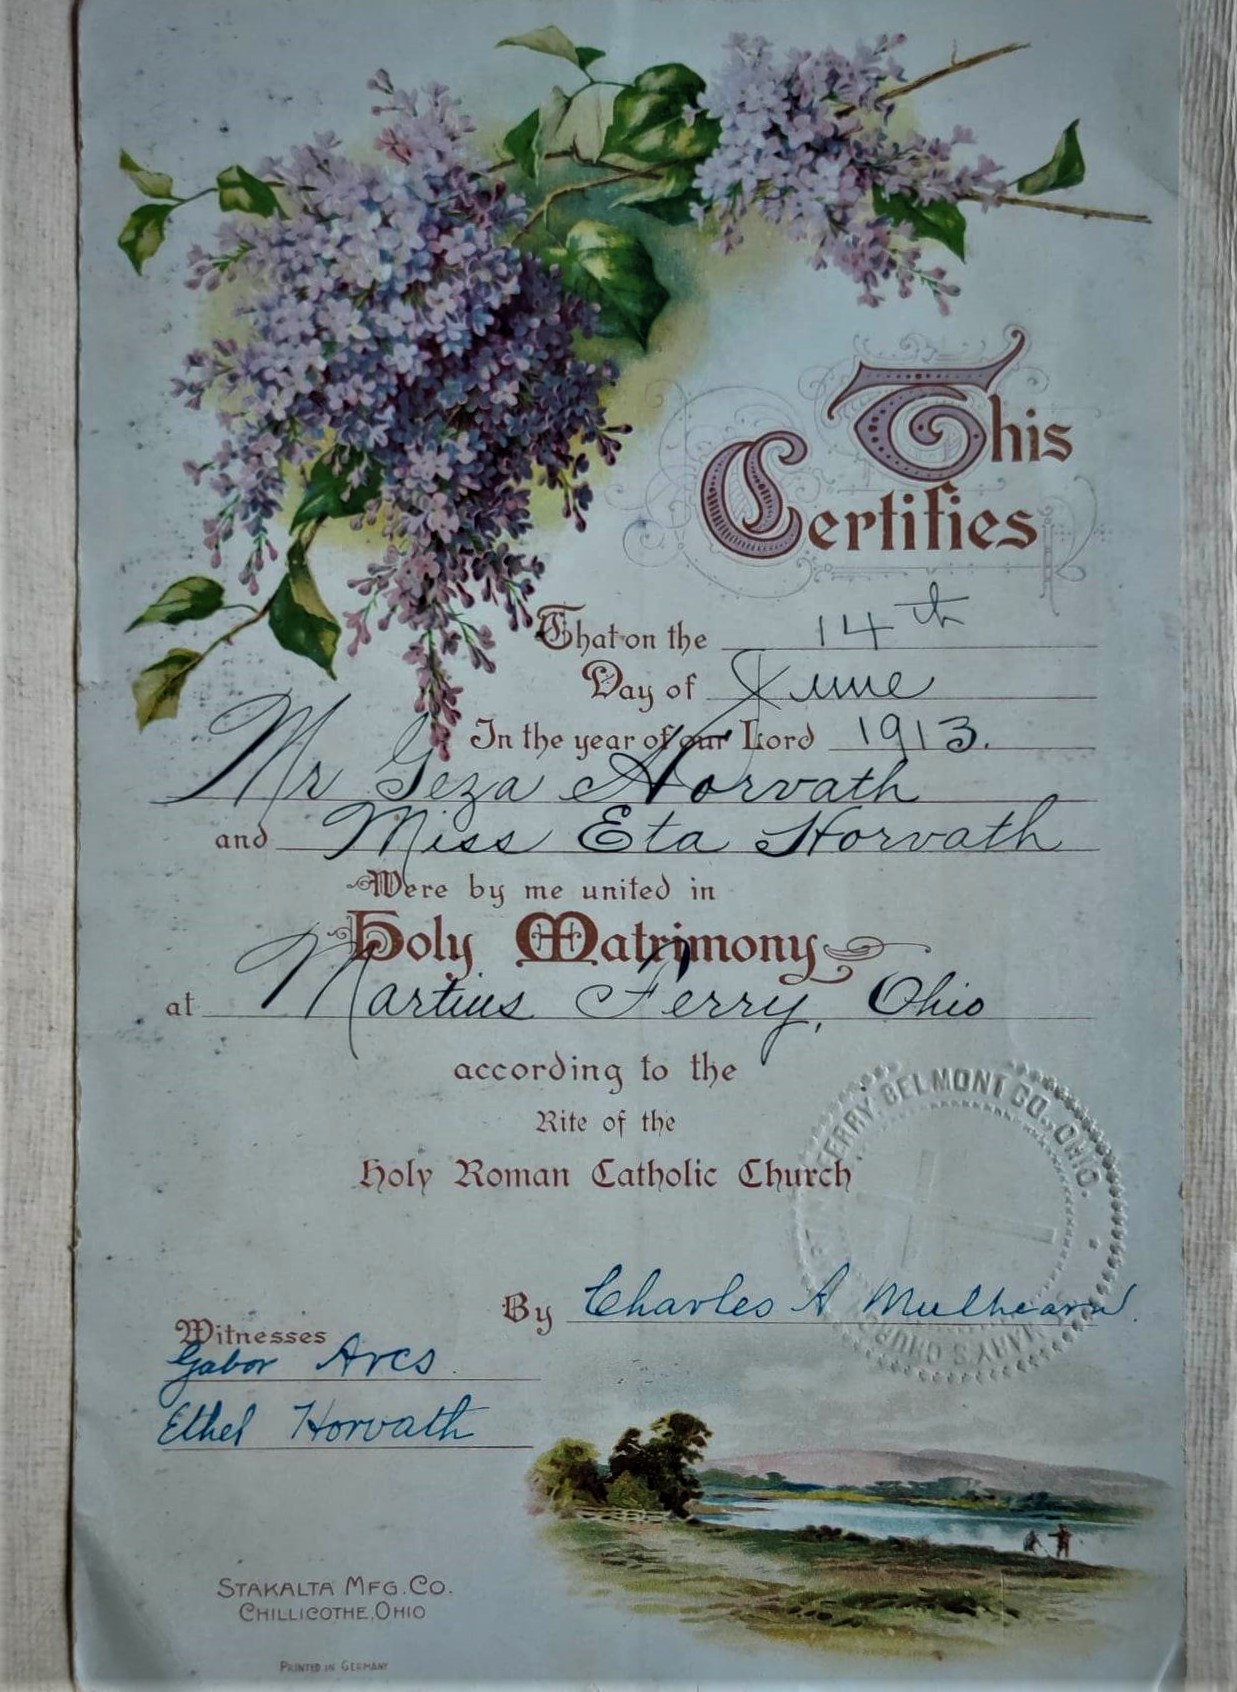 This
Certifies
That on the 14th
Day of June
In the year of our Lord 1913.
Mr Geza Horvath
and Miss Eta Horvath
Were by me united in
Holy Matrimony
at Martins Ferry, Ohio
according to the
Rite of the
Holy Roman Catholic Church
FERRY BELMONT CO., OHIO.
MARY'S CHURCH
By Charles A Mulhearn.
Witnesses
Gabor Arcs
Ethel Horvath
STAKALTA MFG. CO.
CHILLICOTHE, OHIO
PRINTED IN GERMANY